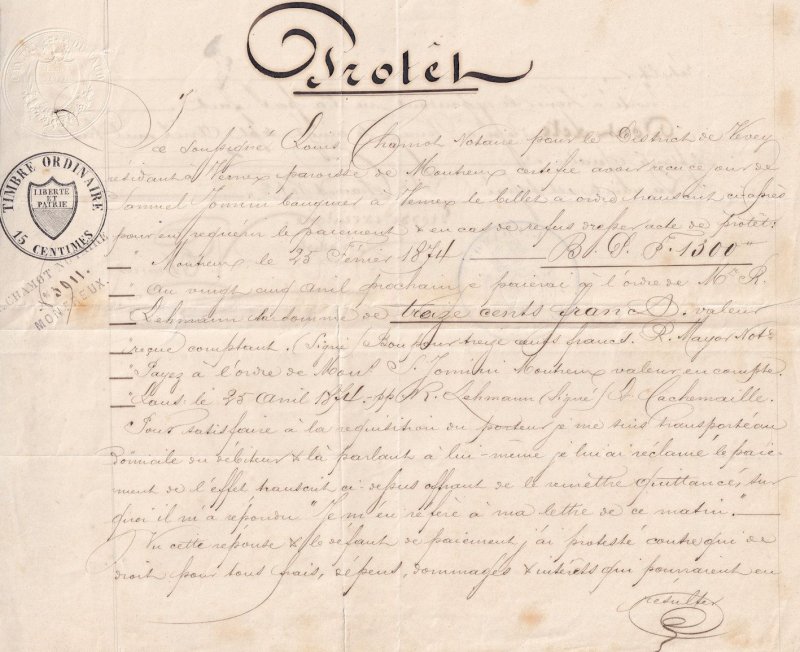 Protêt
Je soussigné Louis Chamot Notaire pour le District de Vevey
résidant à Vernex paroisse de Montreux certifie avoir reçu ce jour de
Samuel Jomini banquier à Vernex le billet à ordre transcrit ci-après
pour en requérir le paiement & en cas de refus dresser acte de protêt:
" Montreux le 25 Février 1874 ——— B. P. F. 1300"
" Au vingt cinq avril prochain je paierai à l'ordre de Mr R.
" Lehmann la somme de treize cents francs. valeur
" reçue comptant. (Signé) Bon pour treize cents francs. R. Mayor Not.
" Payez à l'ordre de Mons. S. Jomini Montreux valeur en compte.
" Laus. le 25 avril 1874. pp R. Lehmann (signé) D. Cachemaille.
Pour satisfaire à la requisition du porteur je me suis transporté au
domicile du débiteur & là parlant à lui-même je lui ai réclamé le paie-
ment de l'effet transcrit ci-dessus offrant de le remettre quittancé, sur
quoi il m'a répondu "Je m'en réfère à ma lettre de ce matin."
Vu cette reponse & le défaut de paiement j'ai protesté contre qui de
droit pour tous frais, depens, dommages & intérêts qui pourraient en
résulter
TIMBRE ORDINAIRE
LIBERTE
ET
PATRIE
15 CENTIMES
CHAMOT NOTAIRE
MONTREUX